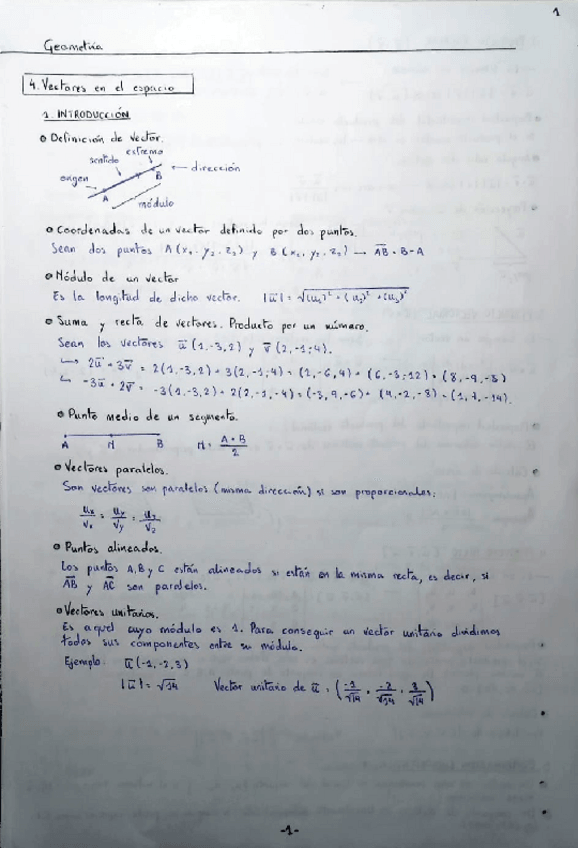 1
Geometría
4. Vectores en el espacio
1. INTRODUCCIÓN
Definición de vector.
extremo
sentido
B
dirección
origen
A
módulo
Coordenadas de un vector definido por dos puntos.
Sean dos puntos A(x₁, y₂, z₂) y B(x₂, y₂, z₂) → AB = B-A
Módulo de un vector
Es la longitud de dicho vector. |u| = √(u₁)² + (u₂)² + (u₃)²
Suma y recta de vectores. Producto por un número.
Sean los vectores u(1,-3,2) y v(2,-1,-4).
2u + 3v = 2(1,-3,2) + 3(2,-1,-4) = (2,-6,4) + (6,-3,-12) = (8,-9,-8)
-3u + 2v = -3(1,-3,2) + 2(2,-1,-4) = (-3,9,-6) + (4,-2,-8) = (1,7,-14).
Punto medio de un segmento.
A M B M = A+B/2
Vectores paralelos.
Son vectores son paralelos (misma dirección) si son proporcionales:
ux/vx = uy/vy = uz/vz
Puntos alineados.
Los puntos A, B y C están alineados si están en la misma recta, es decir, si
AB y AC son paralelos.
Vectores unitarios.
Es aquel cuyo módulo es 1. Para conseguir un vector unitario dividimos
todas sus componentes entre su módulo.
Ejemplo: u(-1,-2,3)
|u| = √14 Vector unitario de u = (-1/√14, -2/√14, 3/√14)
-1-